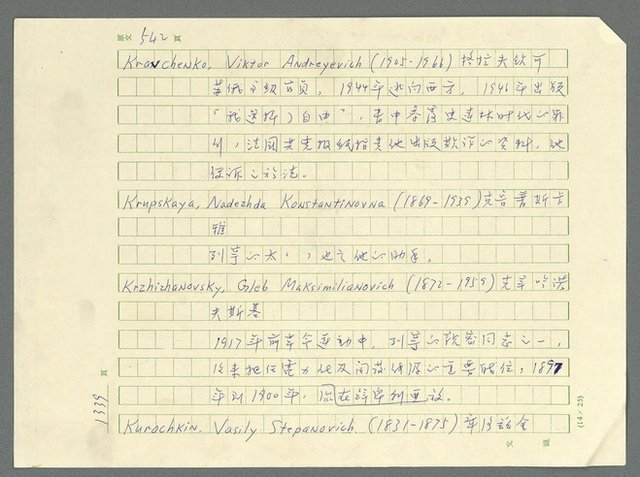 原文 542 頁
Kravchenko, Viktor Andreyevich (1905-1966) 格拉夫欽可
蘇俄高級官員，1944年逃向西方，1946年出版
「我選擇了自由」，書中暴露史達林時代的罪
行，法國共黨報紙指責他出版欺詐的資料，他
Krupskaya, Nadezhda Konstantinovna (1869-1939) 克魯普斯卡
雅
列寧的太太，也是他的助手。
Krzhizhanovsky, Gleb Maksimilianovich (1872-1959) 克
夫斯基
1917年前革命運動中，列寧的親密同志之一，
後來擔任電力化及的重要職位；1897
年到1900年，放。
1339 頁
Kurochkin, Vasily Stepanovich (1831-1875)
(14×25)